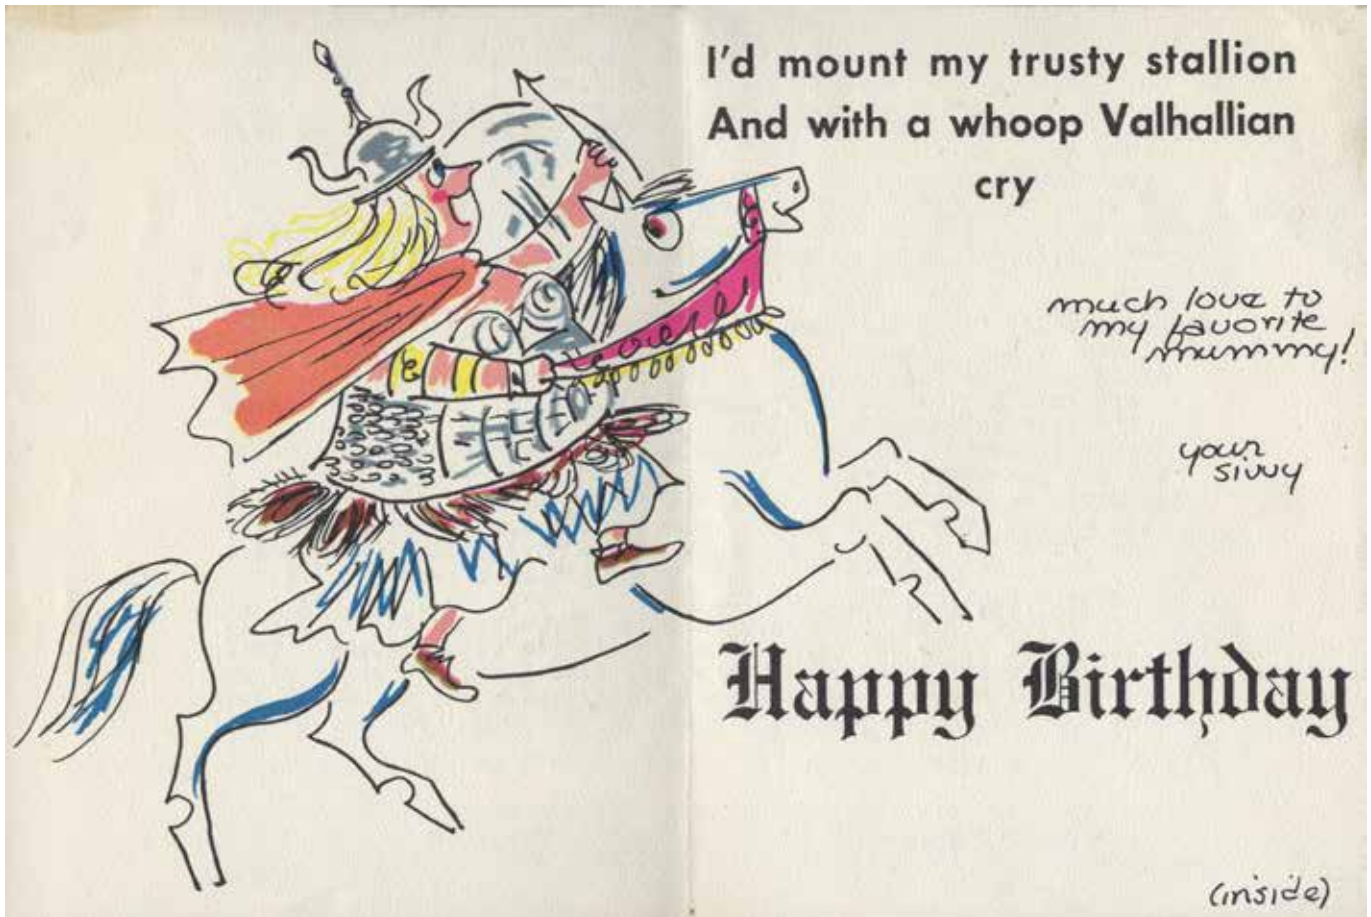 I'd mount my trusty stallion
And with a whoop Valhallian
cry
much love to
my favorite
mummy!
your
sivvy
Happy Birthday
(inside)